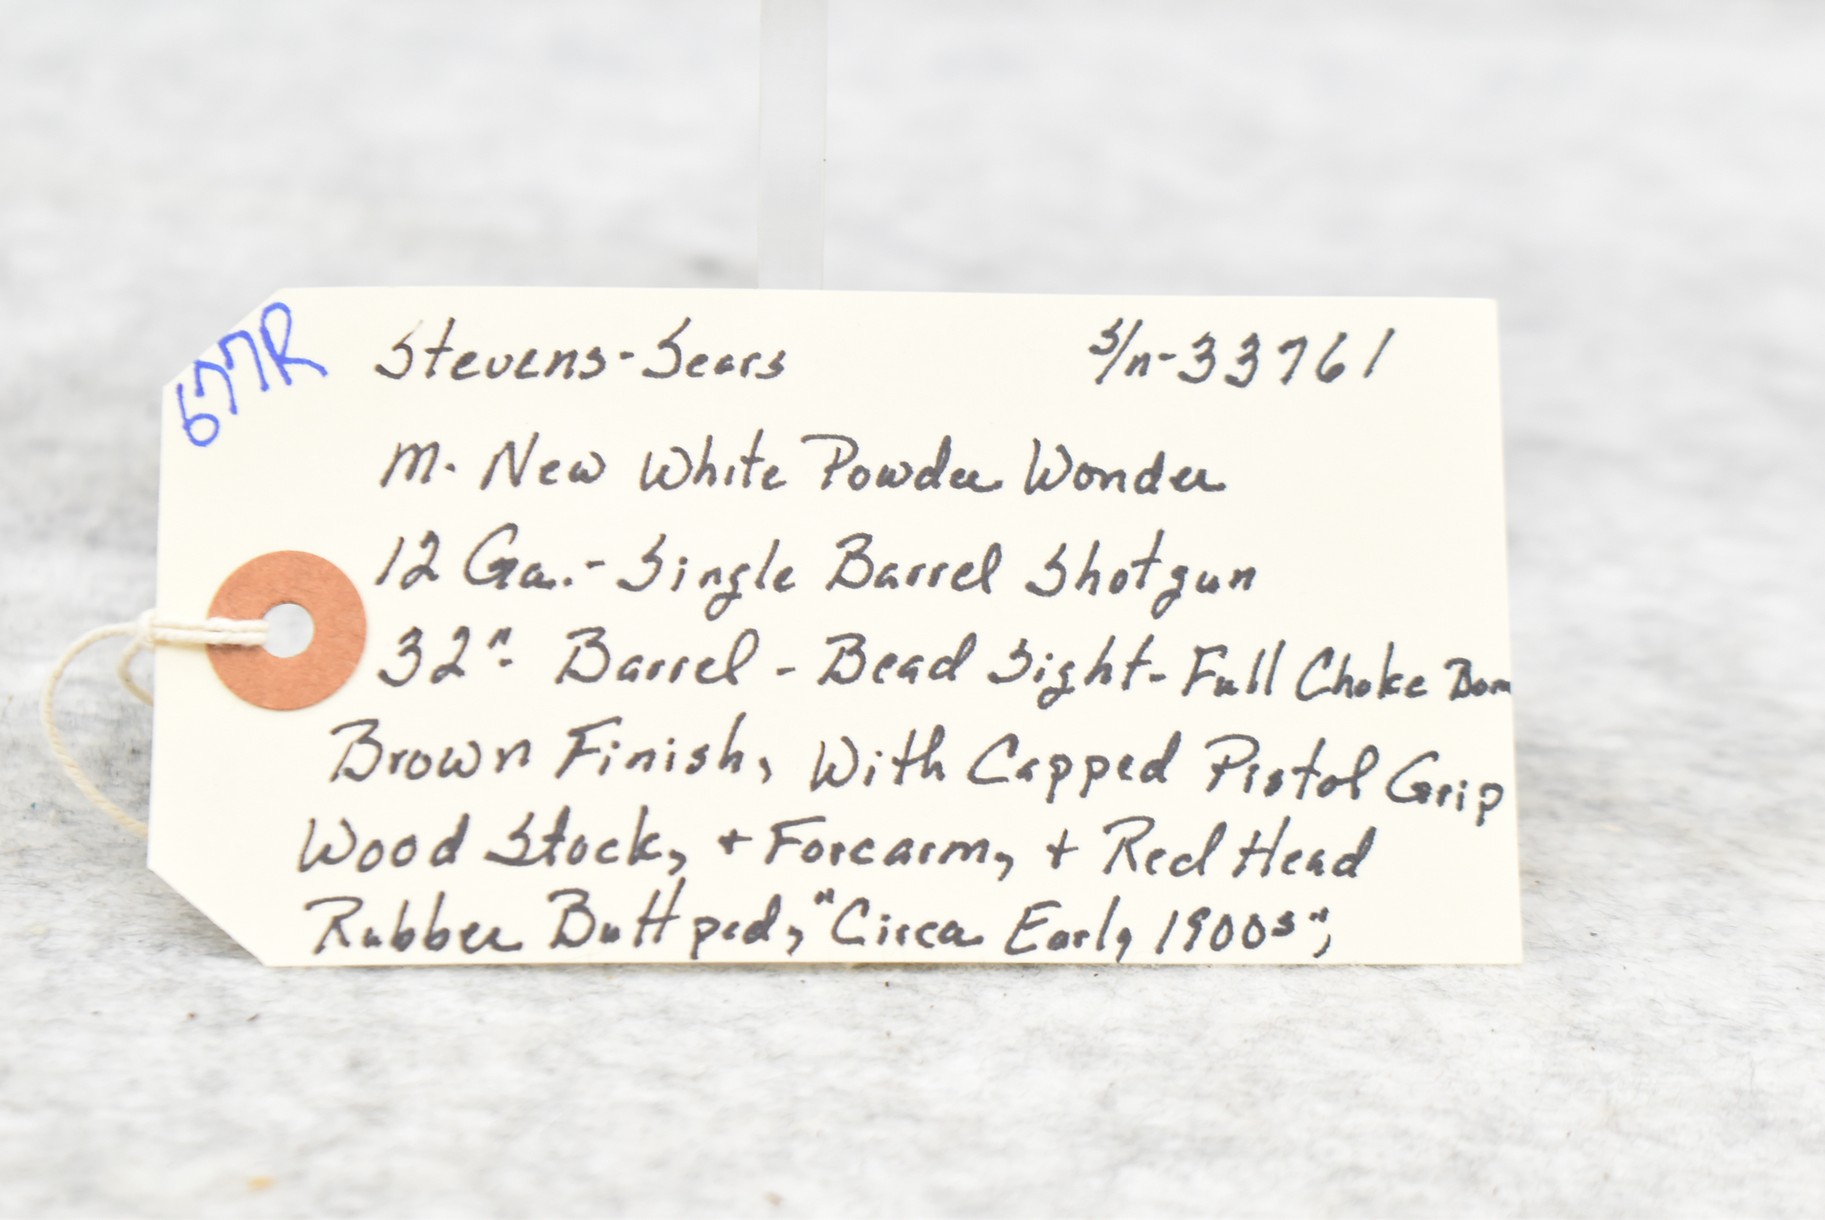 677R
Stevens-Sears S/n-33761
M. New White Powder Wonder
12 Ga.- Single Barrel Shotgun
32"- Barrel - Bead Sight- Full Choke
Brown Finish, With Capped Pistol Grip
Wood Stock, + Forearm, + Red Head
Rubber Buttpad, "Circa Early 1900s",